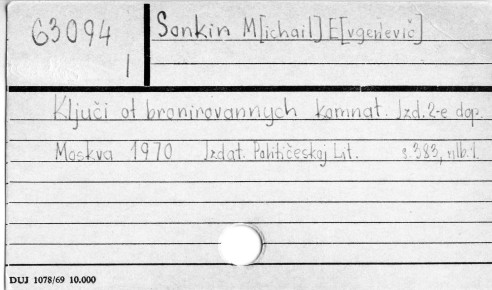 63094
1
Sonkin M[ichail] E[vgenevič]
Ključi ot bronirovannych komnat. Izd. 2-e dop.
Moskva 1970 Izdat. Političeskoj Lit. s. 383,
DUJ 1078/69 10.000